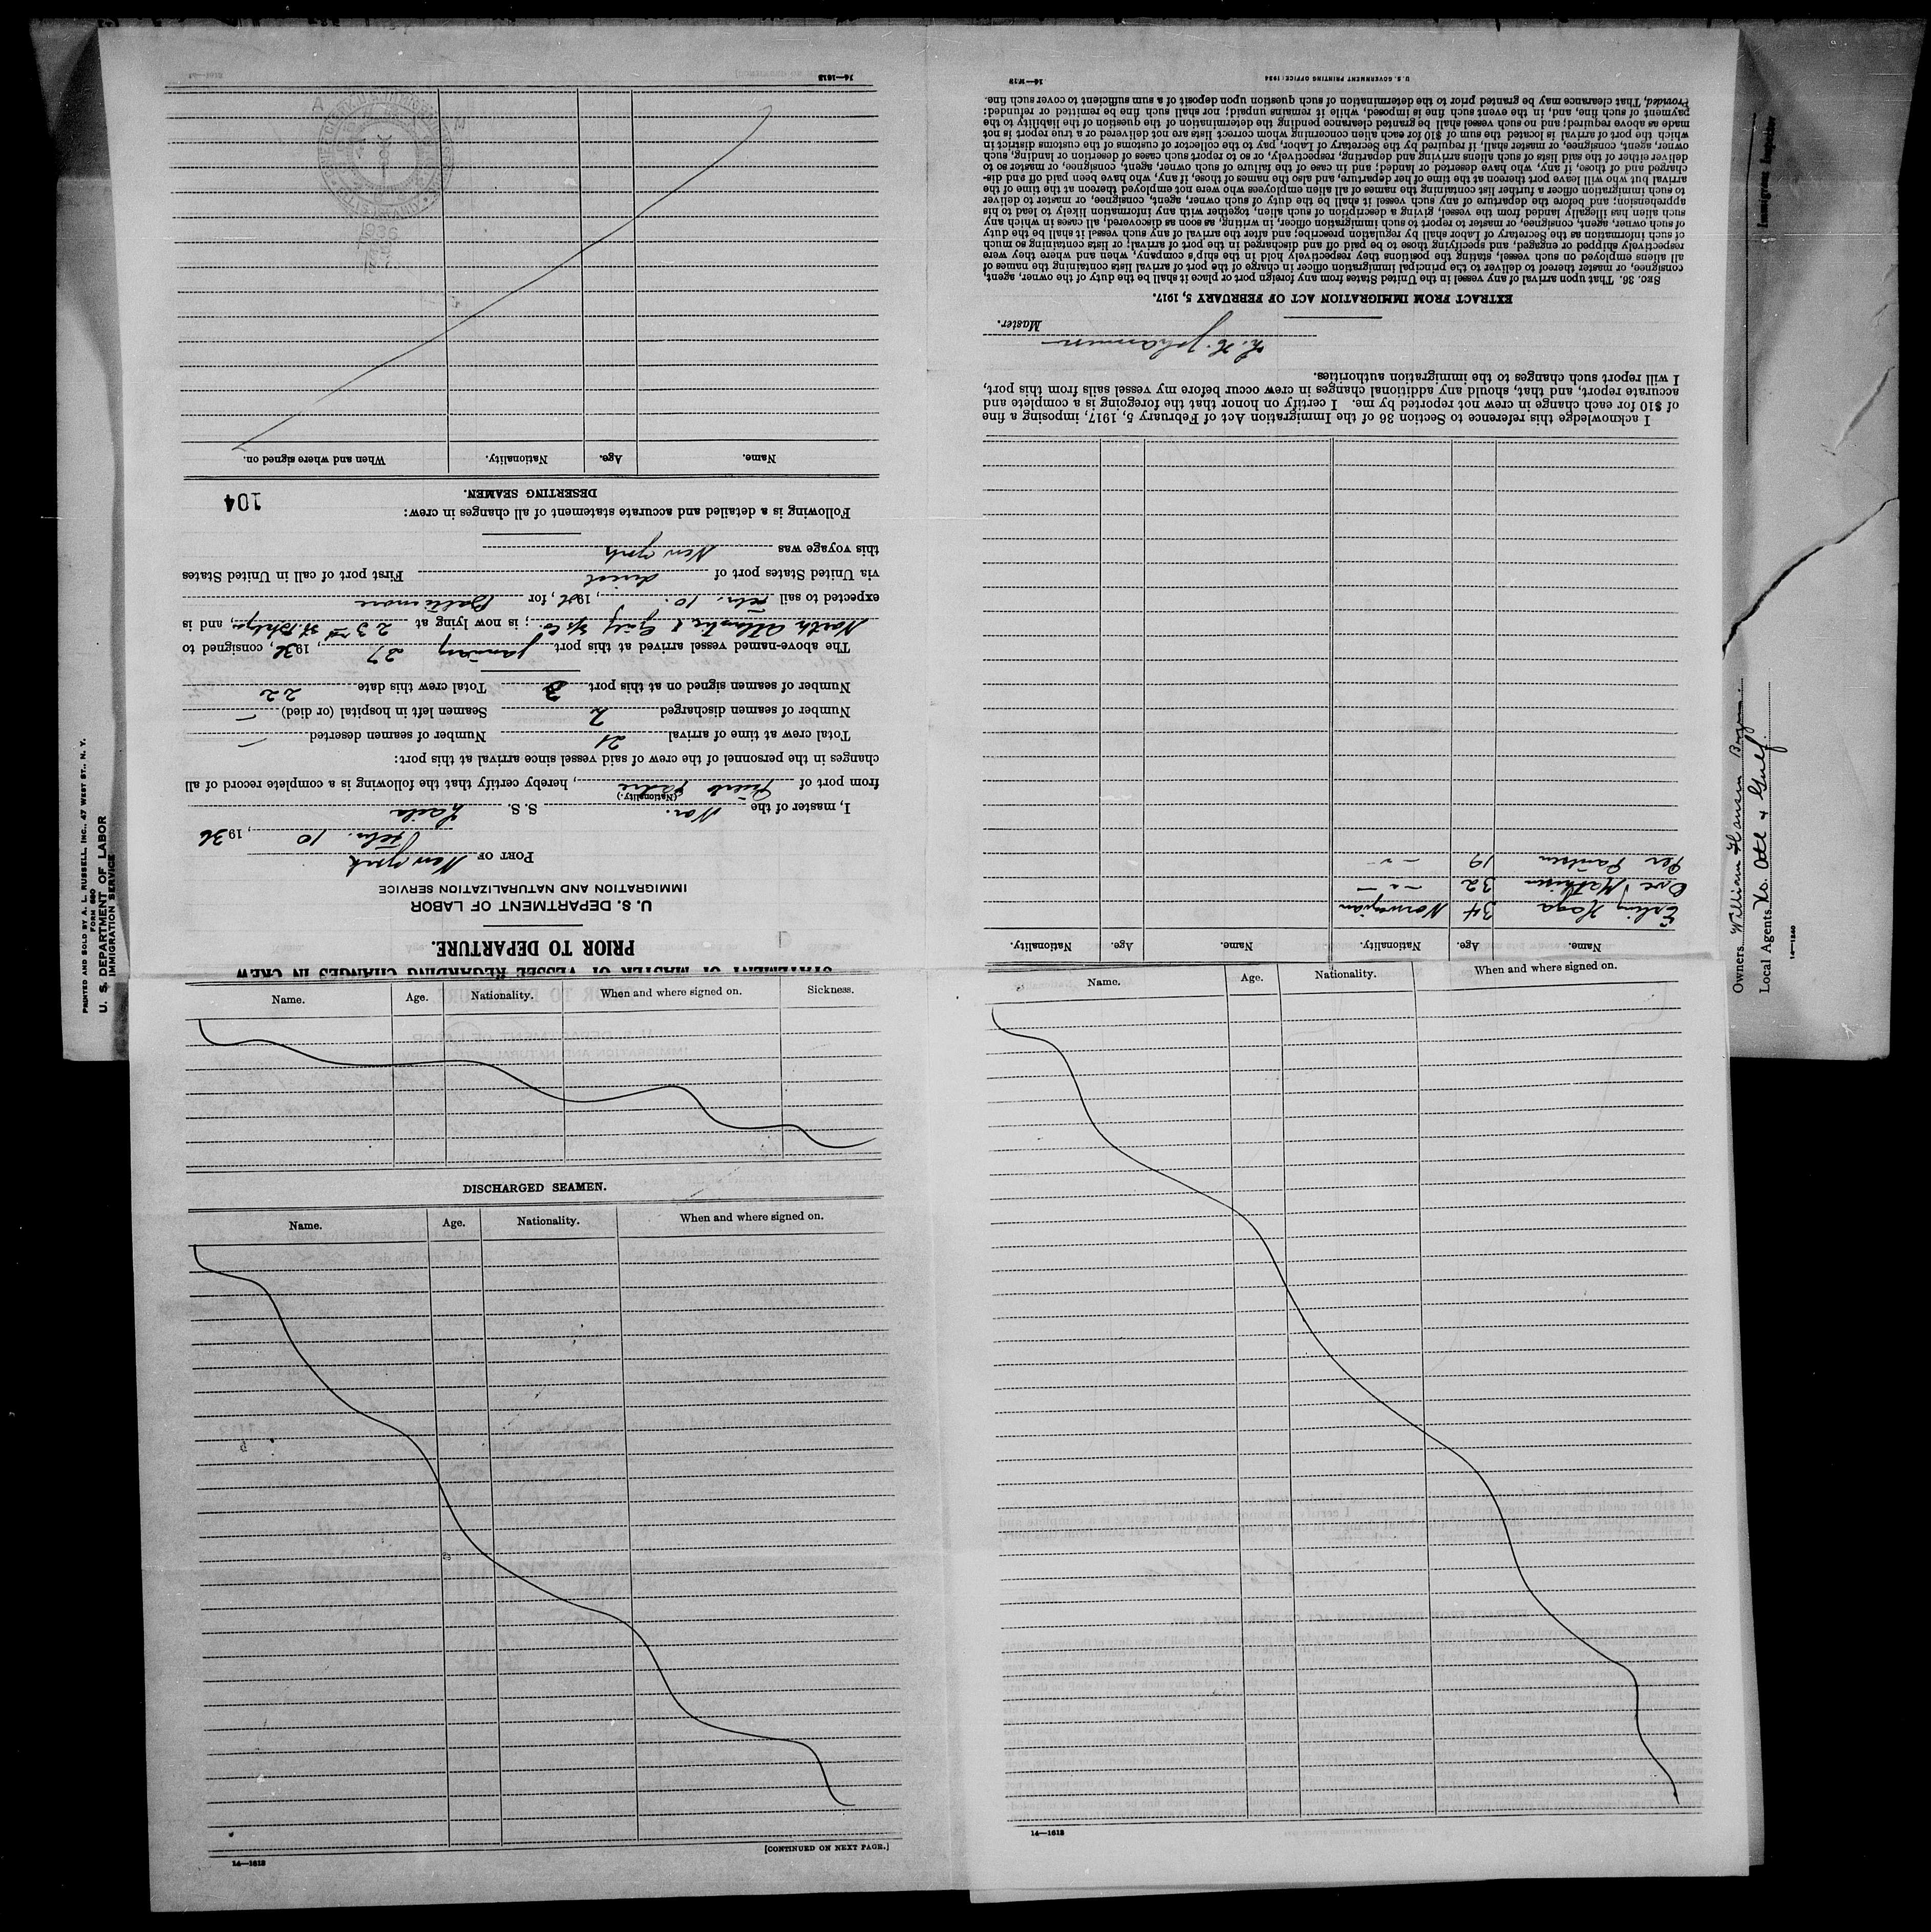 PRINTED AND SOLD BY A. L. RUSSELL, INC., 47 WEST ST., N. Y.
FORM 680
U. S. DEPARTMENT OF LABOR
IMMIGRATION SERVICE
STATEMENT OF MASTER OF VESSEL REGARDING CHANGES IN CREW
PRIOR TO DEPARTURE.
U. S. DEPARTMENT OF LABOR
IMMIGRATION AND NATURALIZATION SERVICE
PORT OF New York
Febr. 10, 1936
I, master of the Nor. S. S. Laila
(Nationality.)
from port of Puerto Padre, hereby certify that the following is a complete record of all
changes in the personnel of the crew of said vessel since arrival at this port:
Total crew at time of arrival 21 Number of seamen deserted —
Number of seamen discharged 2 Seamen left in hospital (or died) —
Number of seamen signed on at this port 3 Total crew this date 22
The above-named vessel arrived at this port January 27, 1936, consigned to
North Atlantic & Gulf S/S Co.; is now lying at 23rd St. Bklyn, and is
expected to sail Febr. 10., 1936, for Baltimore
via United States port of direct First port of call in United States
this voyage was New York
Following is a detailed and accurate statement of all changes in crew:
104
DESERTING SEAMEN.
Name. Age. Nationality. When and where signed on.
1936
14—1613
Name. Age. Nationality. When and where signed on. Sickness.
DISCHARGED SEAMEN.
Name. Age. Nationality. When and where signed on.
[CONTINUED ON NEXT PAGE.]
14—1613
Name. Age. Nationality. When and where signed on.
14—1613
Name. Age. Nationality. Name. Age. Nationality.
Erling Haga 34 Norwegian
Ove Mathisen 32 — " —
Per Paulsen 19 — " —
I acknowledge this reference to Section 36 of the Immigration Act of February 5, 1917, imposing a fine
of $10 for each change in crew not reported by me. I certify on honor that the foregoing is a complete and
accurate report, and that, should any additional changes in crew occur before my vessel sails from this port,
I will report such changes to the immigration authorities.
Johannesen
Master.
EXTRACT FROM IMMIGRATION ACT OF FEBRUARY 5, 1917.
SEC. 36. That upon arrival of any vessel in the United States from any foreign port or place it shall be the duty of the owner, agent,
consignee, or master thereof to deliver to the principal immigration officer in charge of the port of arrival lists containing the names of
all aliens employed on such vessel, stating the positions they respectively hold in the ship's company, when and where they were
respectively shipped or engaged, and specifying those to be paid off and discharged in the port of arrival; or lists containing so much
of such information as the Secretary of Labor shall by regulation prescribe; and after the arrival of any such vessel it shall be the duty
of such owner, agent, consignee, or master to report to such immigration officer, in writing, as soon as discovered, all cases in which any
such alien has illegally landed from the vessel, giving a description of such alien, together with any information likely to lead to his
apprehension; and before the departure of any such vessel it shall be the duty of such owner, agent, consignee, or master to deliver
to such immigration officer a further list containing the names of all alien employees who were not employed thereon at the time of the
arrival but who will leave port thereon at the time of her departure, and also the names of those, if any, who have been paid off and dis-
charged and of those, if any, who have deserted or landed; and in case of the failure of such owner, agent, consignee, or master so to
deliver either of the said lists of such aliens arriving and departing, respectively, or so to report such cases of desertion or landing, such
owner, agent, consignee, or master shall, if required by the Secretary of Labor, pay to the collector of customs of the customs district in
which the port of arrival is located the sum of $10 for each alien concerning whom correct lists are not delivered or a true report is not
made as above required; and no such vessel shall be granted clearance pending the determination of the question of the liability to the
payment of such fine, and, in the event such fine is imposed, while it remains unpaid; nor shall such fine be remitted or refunded:
Provided, That clearance may be granted prior to the determination of such question upon deposit of a sum sufficient to cover such fine.
U. S. GOVERNMENT PRINTING OFFICE: 1934
Immigrant Inspector
Owners William Hansen Bergen.
Local Agents No. Atl & Gulf.
14—1240